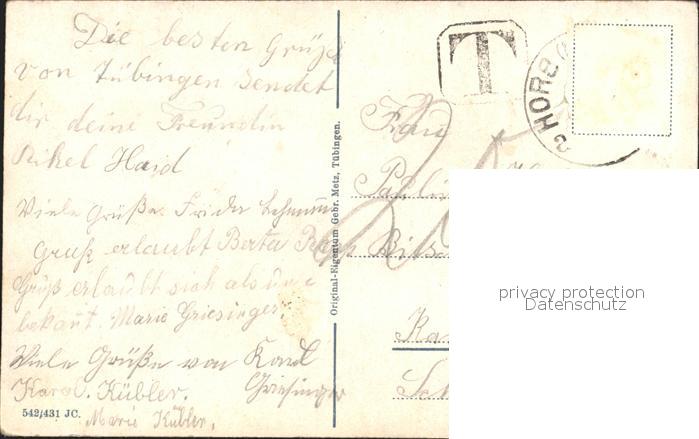 Die besten Grüße
von Tübingen sendet
dir deine Freundin
Rikel Haid
Viele Grüße Frida
Gruß erlaubt Berta
Gruß erlaubt sich als une
bekant. Marie Griesinger.
Viele Grüße von Karl
Griesinger
Karol. Kübler.
Marie Kübler.
542/431 JC.
Original-Eigentum Gebr. Metz, Tübingen.
T
HORB
Frau
privacy protection
Datenschutz